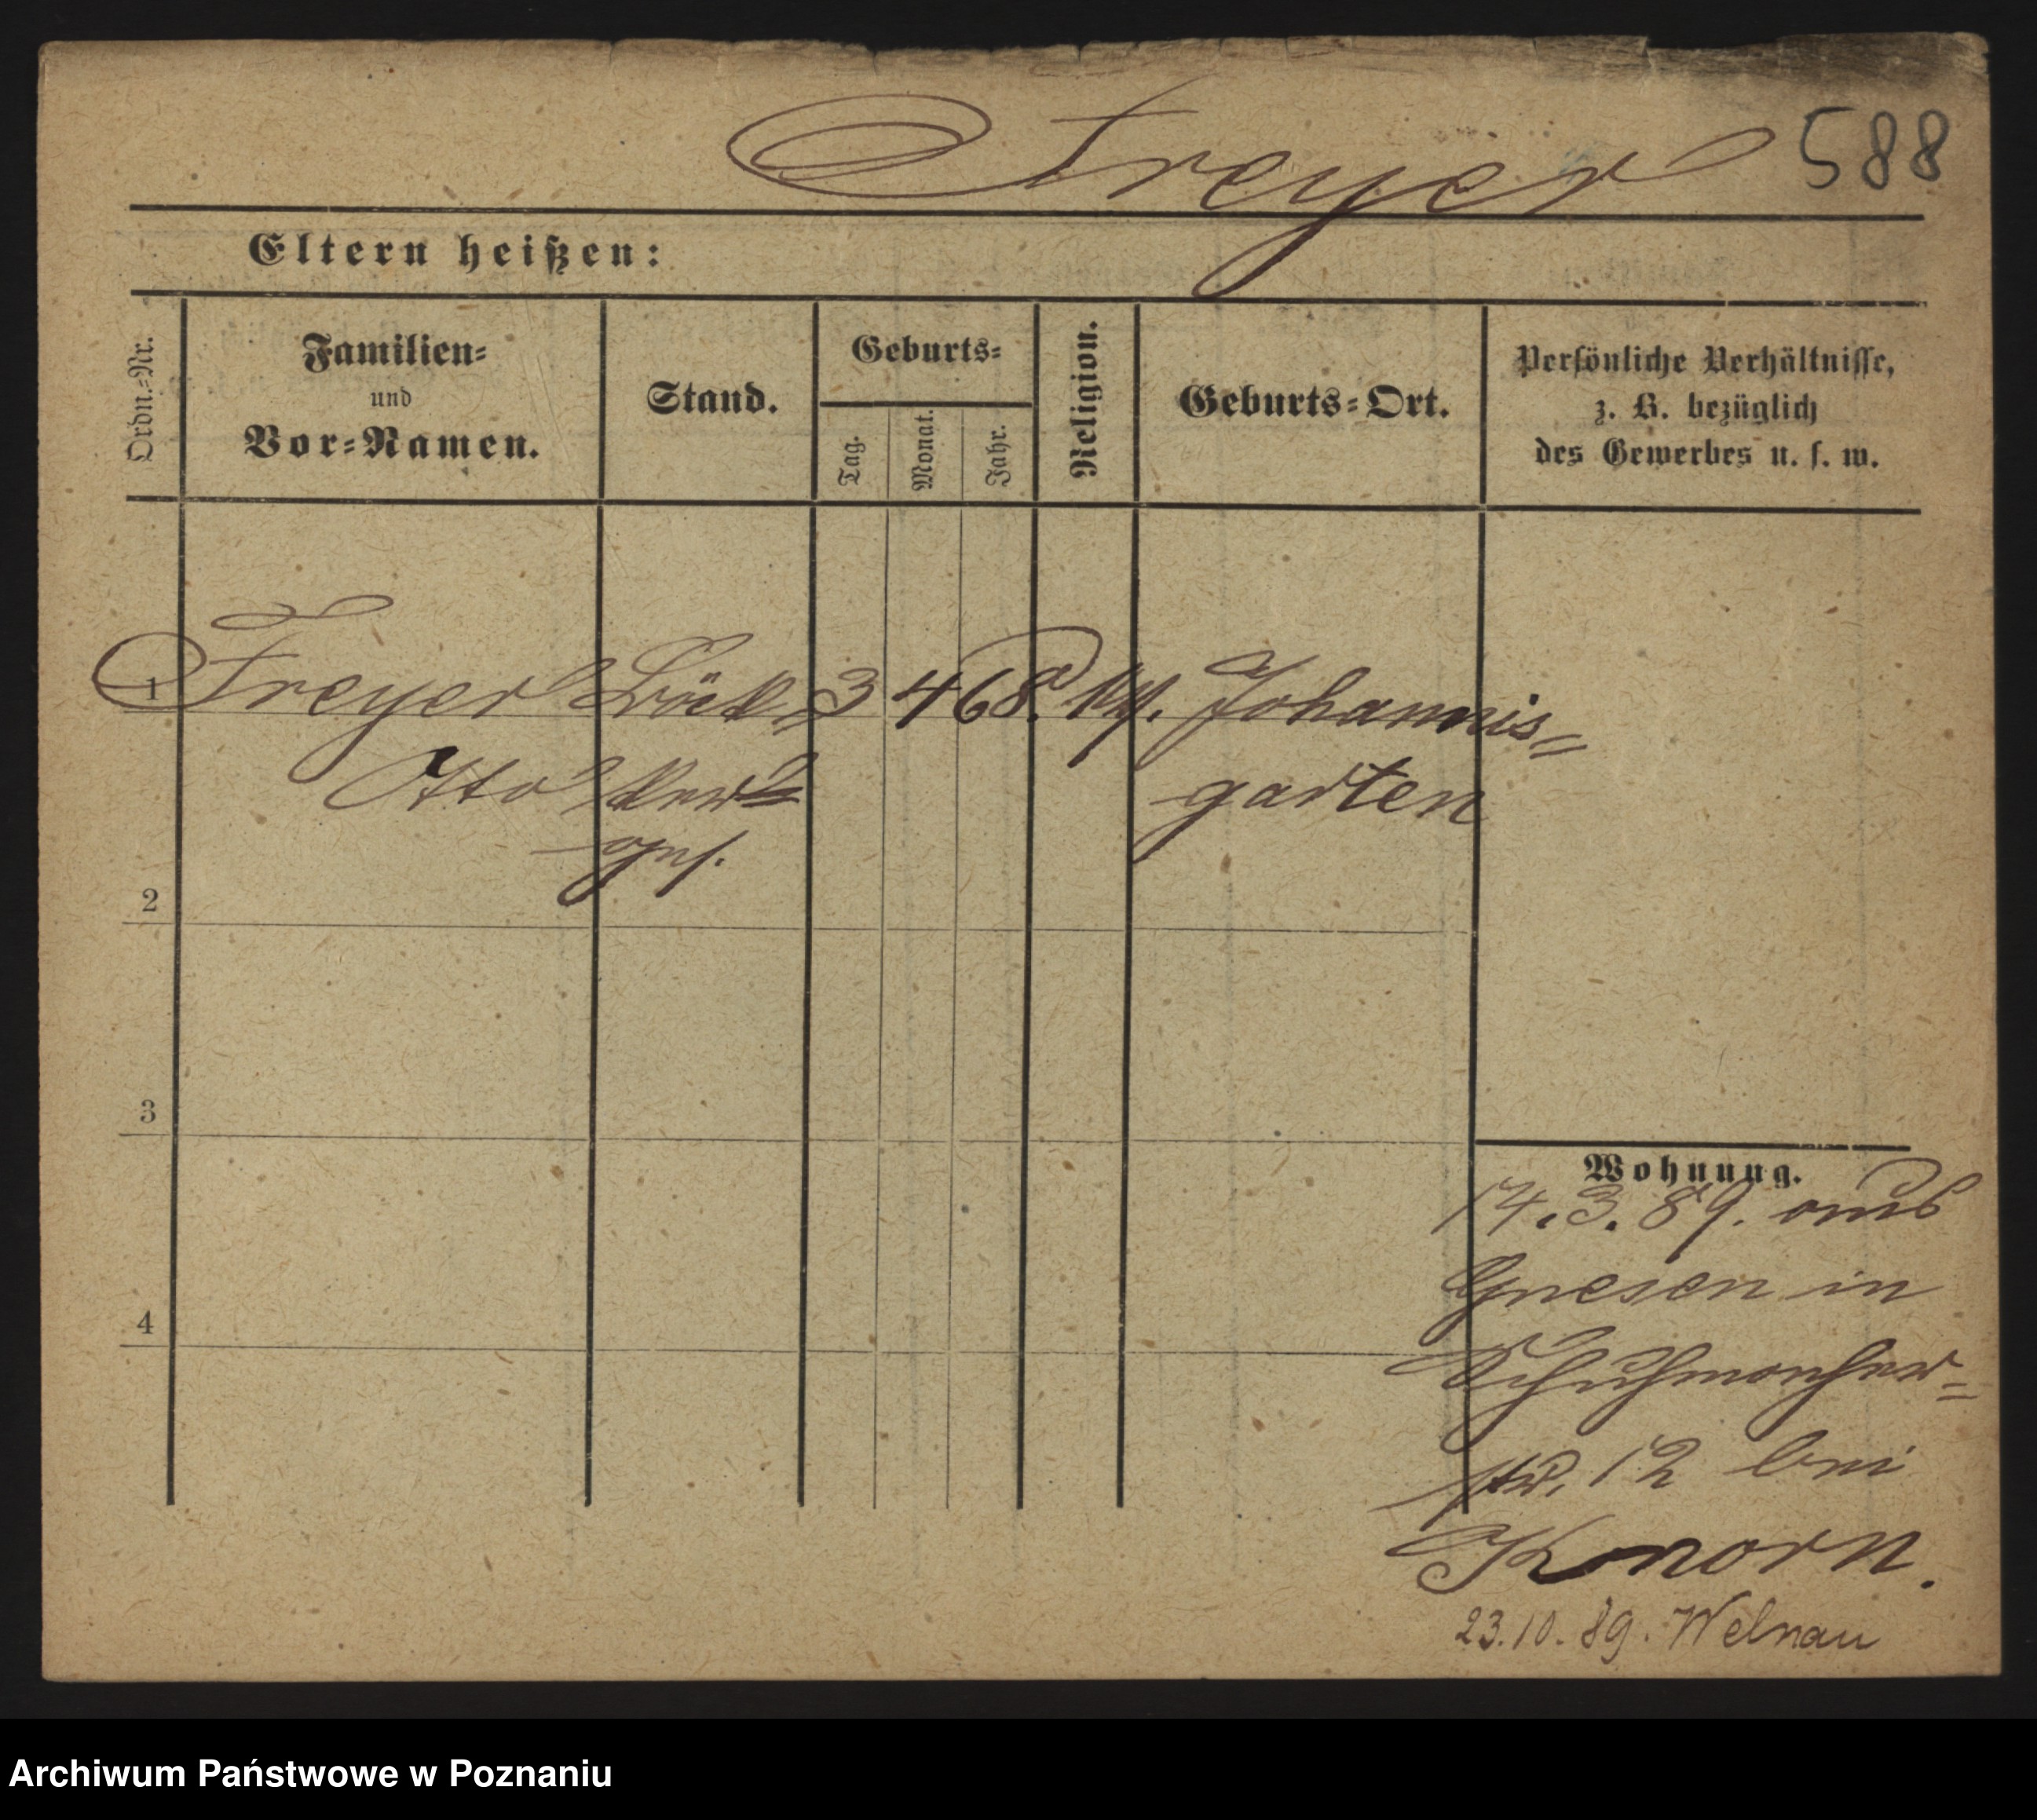 Freyer 588
Eltern heißen:
Ordn.-Nr.
Familien-
und
Vor-Namen.
Stand.
Geburts-
Tag.
Monat.
Jahr.
Religion.
Geburts-Ort.
Persönliche Verhältnisse,
z. B. bezüglich
des Gewerbes u. s. w.
1 Freyer Böttk- 3 4 68. Johannis-
Otto ker garten
ges.
2
3
4
Wohnung.
14.3.89. aus
Gnesen in
Schuhmacher-
str. 12 bei
Knorn.
23.10.89. Welnau
Archiwum Państwowe w Poznaniu